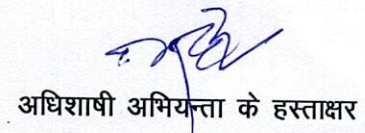 अधिशाषी अभियन्ता के हस्ताक्षर